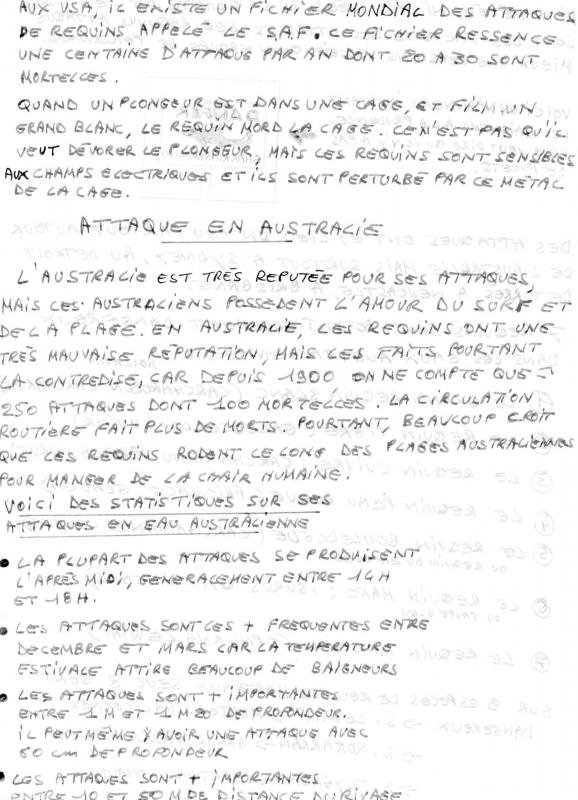 AUX USA, iL EXiSTE UN FiCHiER MONDiAL DES ATTAQUES
DE REQUiNS APPELÉ LE S.A.F. CE FiCHiER RESSENCE
UNE CENTAiNE D'ATTAQUE PAR AN DONT 20 A 30 SONT
MORTELLES.
QUAND UN PLONGEUR EST DANS UNE CAGE, ET FiLM UN
GRAND BLANC, LE REQUiN MORD LA CAGE. CE N'EST PAS QU'iL
VEUT DÉVORER LE PLONGEUR, MAiS LES REQUiNS SONT SENSiBLES
AUX CHAMPS ELECTRiQUES ET iLS SONT PERTURBÉ PAR CE METAL
DE LA CAGE.
ATTAQUE EN AUSTRALiE
L'AUSTRALiE EST TRÈS REPUTÉE POUR SES ATTAQUES,
MAiS LES AUSTRALiENS POSSEDENT L'AMOUR DU SURF ET
DE LA PLAGE. EN AUSTRALiE, LES REQUiNS ONT UNE
TRÈS MAUVAiSE REPUTATiON, MAiS LES FAiTS POURTANT
LA CONTREDiSE, CAR DEPUiS 1900 ON NE COMPTE QUE
250 ATTAQUES DONT 100 MORTELLES. LA CiRCULATiON
ROUTiÈRE FAiT PLUS DE MORTS. POURTANT, BEAUCOUP CROiT
QUE LES REQUiNS RODENT LE LONG DES PLAGES AUSTRALiENNES
POUR MANGER DE LA CHAiR HUMAiNE.
VOiCi DES STATiSTiQUES SUR SES
ATTAQUES EN EAU AUSTRALiENNE
• LA PLUPART DES ATTAQUES SE PRODUiSENT
L'APRÈS MiDi, GENERALEMENT ENTRE 14H
ET 18H.
• LES ATTAQUES SONT LES + FREQUENTES ENTRE
DECEMBRE ET MARS CAR LA TEMPERATURE
ESTiVALE ATTiRE BEAUCOUP DE BAiGNEURS
• LES ATTAQUES SONT + iMPORTANTES
ENTRE 1 M ET 1 M 20 DE PROFONDEUR.
iL PEUT MÊME Y AVOiR UNE ATTAQUE AVEC
60 cm DE PROFONDEUR
• LES ATTAQUES SONT + iMPORTANTES
ENTRE 10 ET 50 M DE DiSTANCE DU RiVAGE